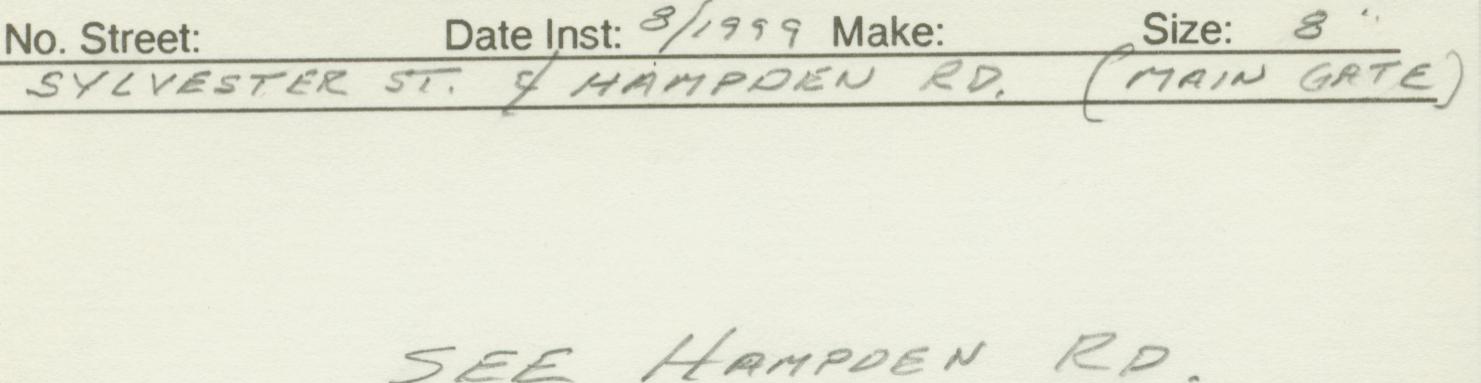 No. Street: Date Inst: 8/1999 Make: Size: 8"
SYLVESTER ST. & HAMPDEN RD. (MAIN GATE)
SEE HAMPDEN RD.